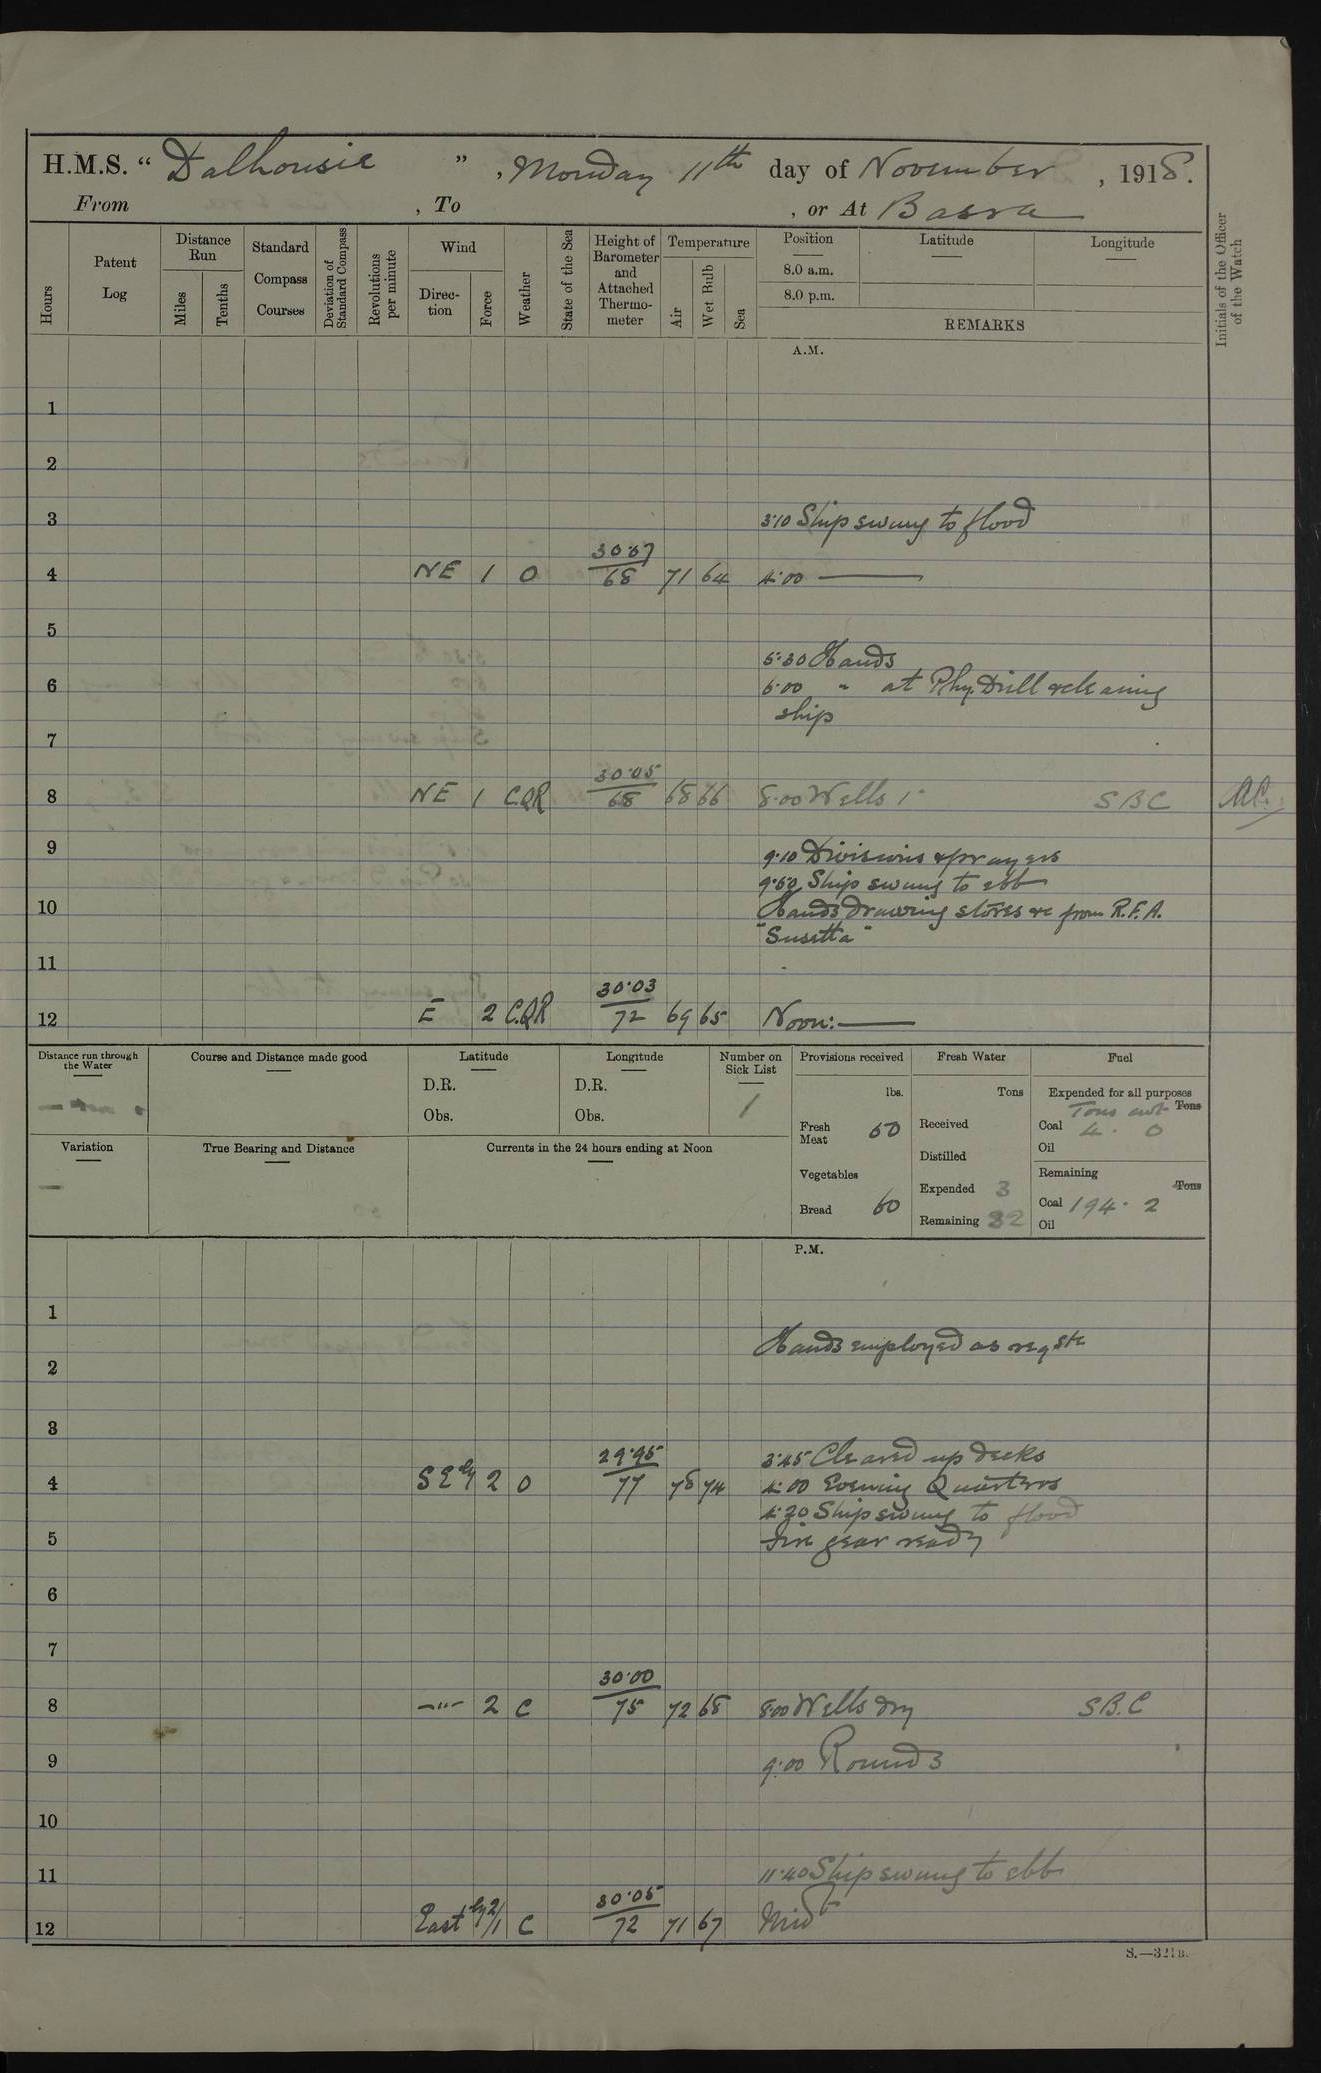 H.M.S. "Dalhousie", Monday 11th day of November, 1918.
From , To , or At Basra
Hours
Patent Log
Distance Run
Miles
Tenths
Standard Compass Courses
Deviation of Standard Compass
Revolutions per minute
Wind
Direc-tion
Force
Weather
State of the Sea
Height of Barometer and Attached Thermo-meter
Temperature
Air
Wet Bulb
Sea
Position
8.0 a.m.
8.0 p.m.
Latitude
Longitude
REMARKS
Initials of the Officer of the Watch
A.M.
1
2
3 3·10 Ship swung to flood
4 NE 1 O 30·07 68 71 64 4·00 —
5
5·30 Hands
6 6·00 " at Phy. Drill & cleaning
ship
7
8 NE 1 CQR 30·05 68 68 66 8·00 Wells 1" SBC
9 9·10 Divisions & prayers
9·50 Ship swung to ebb
10 Hands drawing stores &c from R.F.A.
"Susetta"
11
12 E 2 CQR 30·03 72 69 65 Noon: —
Distance run through the Water
Course and Distance made good
Latitude
D.R.
Obs.
Longitude
D.R.
Obs.
Number on Sick List
1
Provisions received
lbs.
Fresh Meat 60
Vegetables
Bread 60
Fresh Water
Tons
Received
Distilled
Expended 3
Remaining 32
Fuel
Expended for all purposes
Tons cwt Tons
Coal 4 · 0
Oil
Remaining
Tons
Coal 194 · 2
Oil
Variation
—
True Bearing and Distance
Currents in the 24 hours ending at Noon
P.M.
1
Hands employed as reqste
2
3
3·45 Cleared up decks
4 SEly 2 O 29·95 77 78 74 4·00 Evening Quarters
4·20 Ship swung to flood
5 Fire gear ready
6
7
8 —"— 2 C 30·00 75 72 68 8·00 Wells dry S.B.C
9 9·00 Rounds
10
11 11·40 Ship swung to ebb
12 Eastly 2/1 C 30·05 72 71 67 Midt
S.—321B.